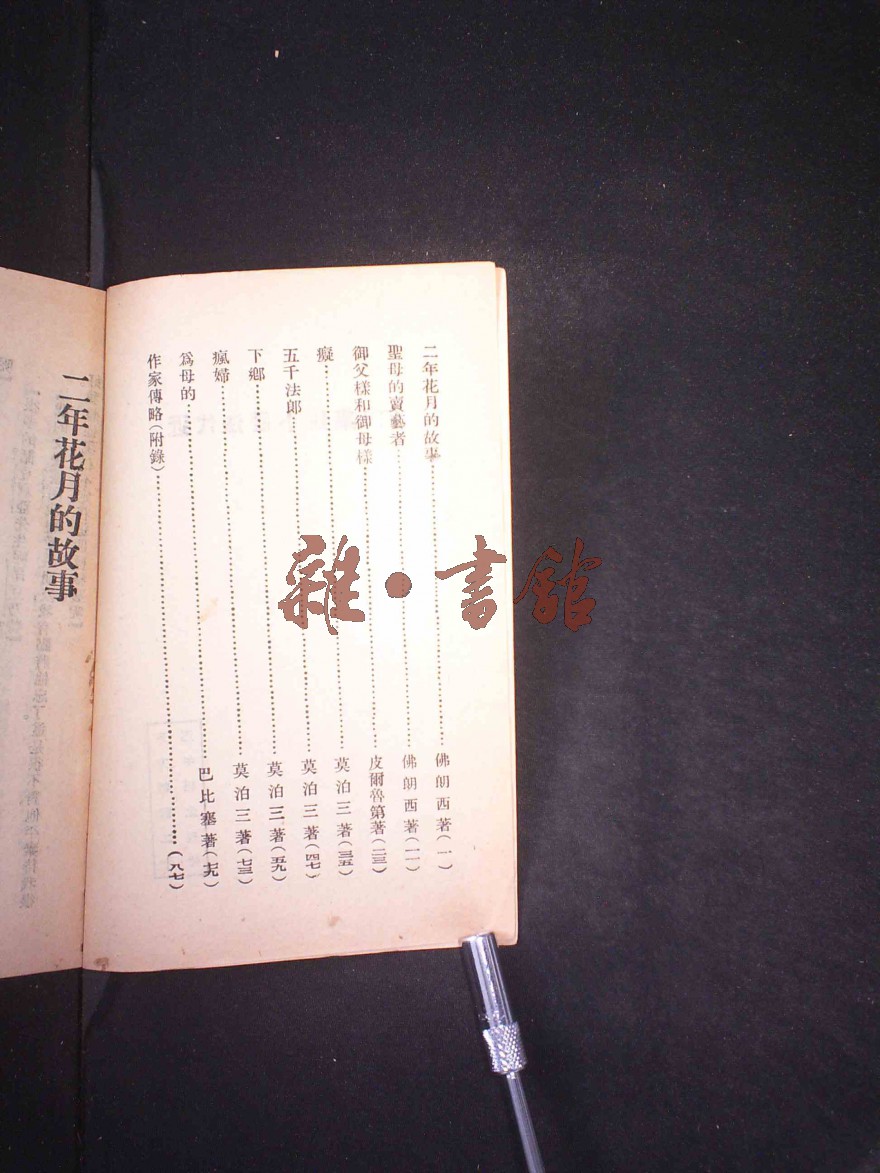 二年花月的故事……佛朗西著(一)
聖母的賣藝者……佛朗西著(一一)
御父樣和御母樣……皮爾魯第著(二三)
癡……莫泊三著(三五)
五千法郎……莫泊三著(四七)
下鄉……莫泊三著(五九)
瘋婦……莫泊三著(七三)
爲母的……巴比塞著(七九)
作家傳略(附錄)……(八七)
二年花月的故事
雜•書館